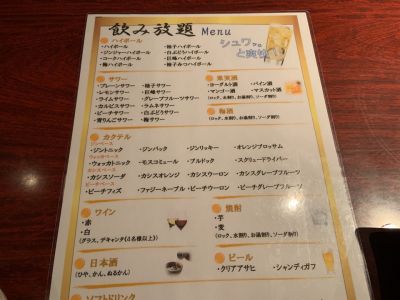 飲み放題 Menu
シュワッと爽快!
ハイボール
・ハイボール ・柚子ハイボール
・ジンジャーハイボール ・白ぶどうハイボール
・コークハイボール ・巨峰ハイボール
・梅ハイボール ・柚子みつハイボール
サワー
・プレーンサワー ・柚子サワー
・レモンサワー ・巨峰サワー
・ライムサワー ・グレープフルーツサワー
・カルピスサワー ・ラムネサワー
・ピーチサワー ・白ぶどうサワー
・青りんごサワー ・梅サワー
果実酒
・ヨーグルト酒 ・パイン酒
・マンゴー酒 ・マスカット酒
(ロック、水割り、お湯割り、ソーダ割り)
梅酒
(ロック、水割り、お湯割り、ソーダ割り)
カクテル
ジンベース
・ジントニック ・ジンバック ・ジンリッキー ・オレンジブロッサム
ウォッカベース
・ウォッカトニック ・モスコミュール ・ブルドック ・スクリュードライバー
カシスベース
・カシスソーダ ・カシスオレンジ ・カシスウーロン ・カシスグレープフルーツ
ピーチベース
・ピーチフィズ ・ファジーネーブル ・ピーチウーロン ・ピーチグレープフルーツ
ワイン
・赤
・白
(グラス、デキャンタ(4名様以上))
焼酎
・芋
・麦
(ロック、水割り、お湯割り、ソーダ割り)
日本酒
(ひや、かん、ぬるかん)
ビール
・クリアアサヒ ・シャンディガフ
ソフトドリンク